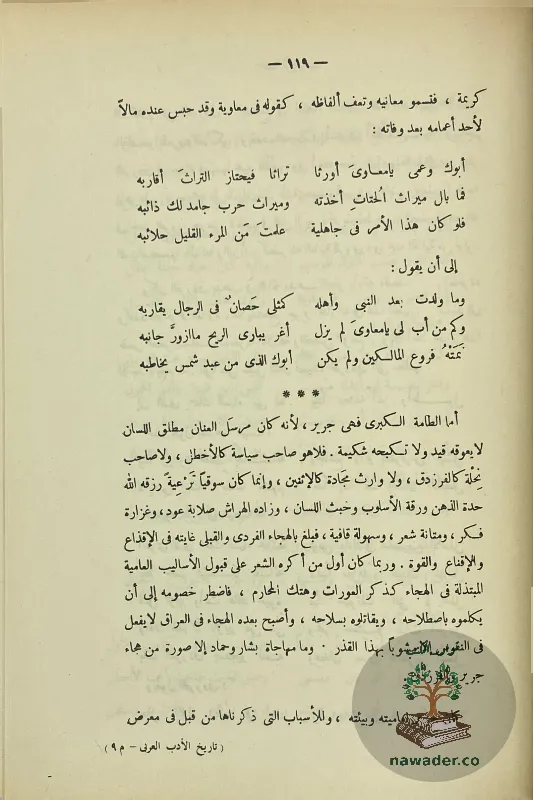 — ١١٩ —
كريمة ، فتسمو معانيه وتعف ألفاظه ، كقوله فى معاوية وقد حبس عنده مالاً
لأحد أعمامه بعد وفاته :
أبوك وعمى يامعاوىَ أورثا تراثا فيحتاز التراثَ أقاربه
فما بال ميراث الحُتاتِ أخذته وميراث حرب جامد لك ذائبه
فلو كان هذا الأمر فى جاهلية علمتَ مَن المرء القليل حلائبه
إلى أن يقول :
وما ولدت بعد النبى وأهله كمثلى حَصانٌ فى الرجال يقاربه
وكم من أب لى يامعاوىَ لم يزل أغر يبارى الريح ماازورَّ جانبه
نَمَتْهُ فروع المالكين ولم يكن أبوك الذى من عبد شمس يخاطبه
* * *
أما الطامة الكبرى فهى جرير ، لأنه كان مرسَل العنان مطلق اللسان
لايعوقه قيد ولا تكبحه شكيمة . فلاهو صاحب سياسة كالأخطل ، ولاصاحب
نِحْلة كالفرزدق ، ولا وارث مَجادة كالإثنين ، وإنما كان سوقياً تَرْعيةً رزقه الله
حدة الذهن ورقة الأسلوب وخبث اللسان ، وزاده الهراش صلابة عود ، وغزارة
فكر ، ومتانة شعر ، وسهولة قافية ، فبلغ بالهجاء الفردى والقبلى غايته فى الإقذاع
والإقناع والقوة . وربما كان أول من أكره الشعر على قبول الأساليب العامية
المبتذلة فى الهجاء كذكر العورات وهتك المحارم ، فاضطر خصومه إلى أن
يكلموه باصطلاحه ، ويقاتلوه بسلاحه ، وأصبح بعده الهجاء فى العراق لايفعل
فى النفوس مشوباً بهذا القذر . وما مهاجاة بشار وحماد إلا صورة من هجاء
جرير والفرزدق
وبيئته ، وللأسباب التى ذكرناها من قبل فى معرض
( تاريخ الأدب العربى – م ٩ )
nawader.co